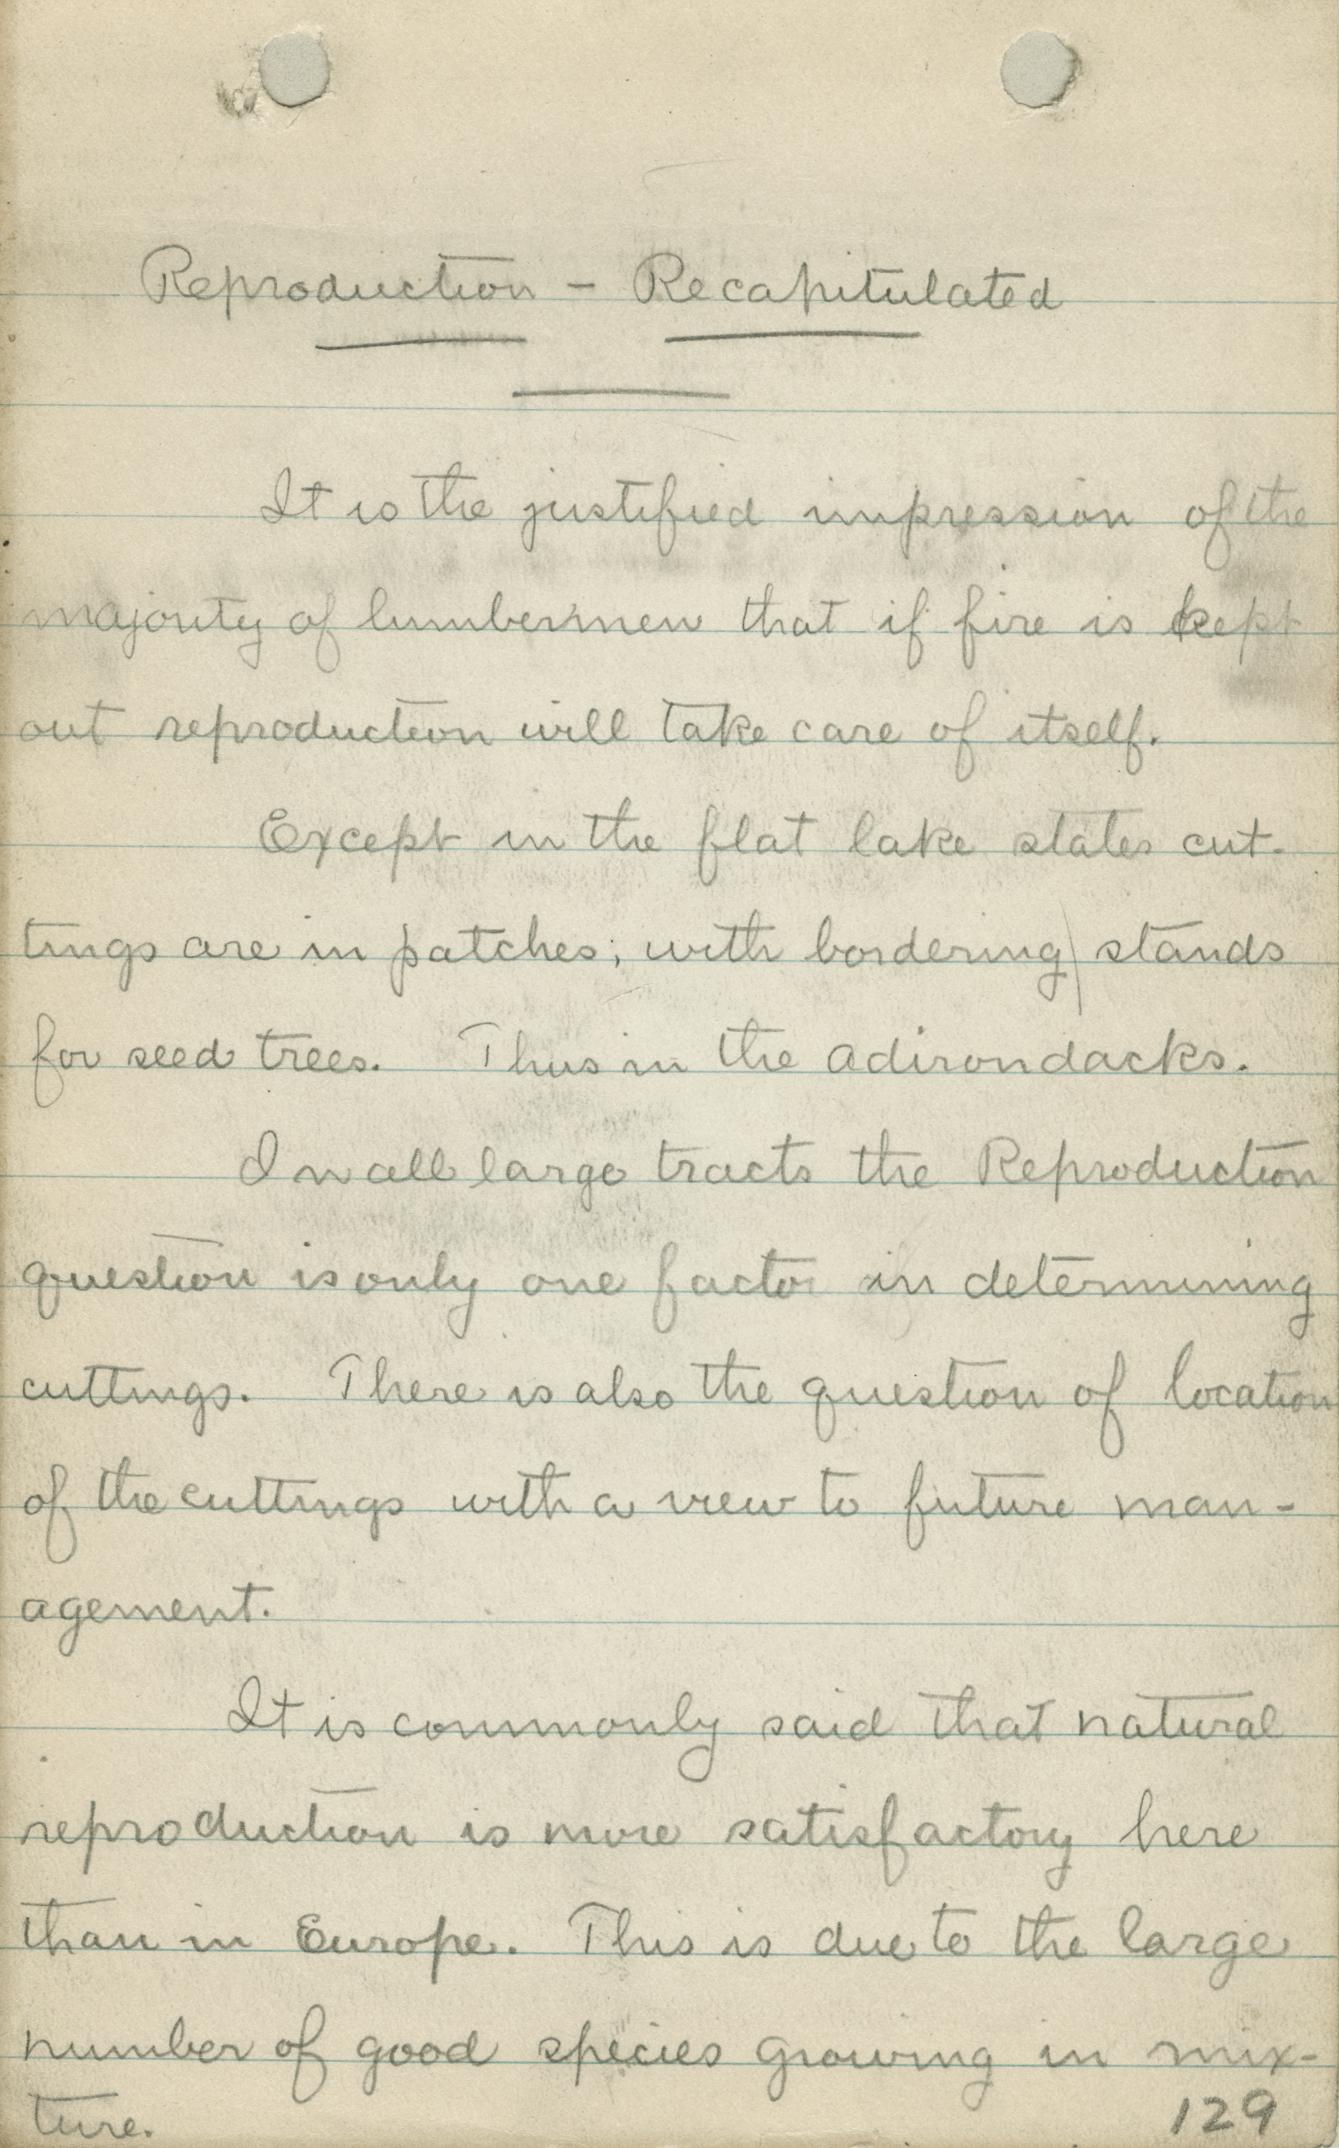 Reproduction – Recapitulated
It is the justified impression of the
majority of lumbermen that if fire is kept
out reproduction will take care of itself.
Except in the flat lake states cut-
tings are in patches; with bordering stands
for seed trees. Thus in the Adirondacks.
In all large tracts the Reproduction
question is only one factor in determining
cuttings. There is also the question of location
of the cuttings with a view to future man-
agement.
It is commonly said that natural
reproduction is more satisfactory here
than in Europe. This is due to the large
number of good species growing in mix-
ture.
129